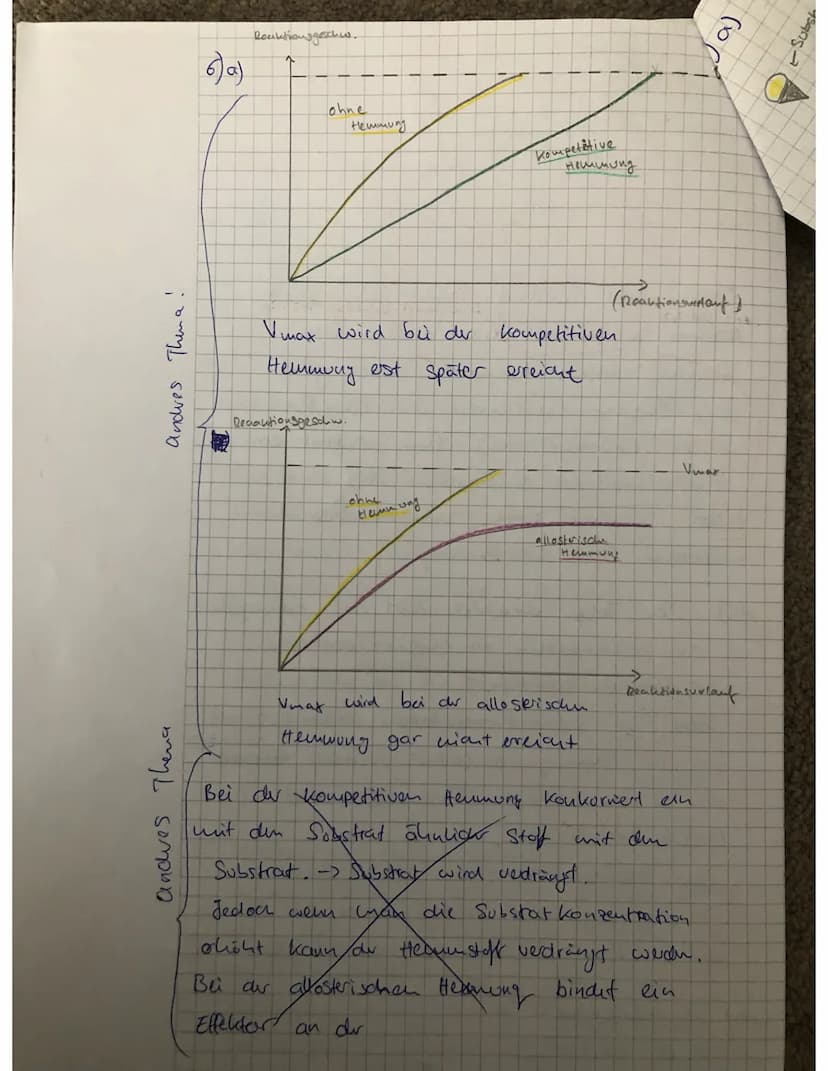 Reaktionsgeschw.
6)a)
ohne
Hemmung
Kompetitive
Hemmung
(Reaktionsverlauf)
Vmax wird bei der kompetitiven
Hemmung erst später erreicht
andres Thema!
Reaaktionsgeschw.
Vmax
ohne
Hemmung
allosterische
Hemmung
Reaktionsverlauf
Vmax wird bei der allosterischen
Hemmung gar nicht erreicht
andres Thema
Bei der kompetitiven Hemmung konkuriert ein
mit dem Substrat ähnlicher Stoff mit dem
Substrat. -> Substrat wird verdrängt.
Jedoch wenn man die Substratkonzentration
erhöht kann der Hemmstoff verdrängt werden.
Bei der allosterischen Hemmung bindet ein
Effektor an der
a)
← Subst